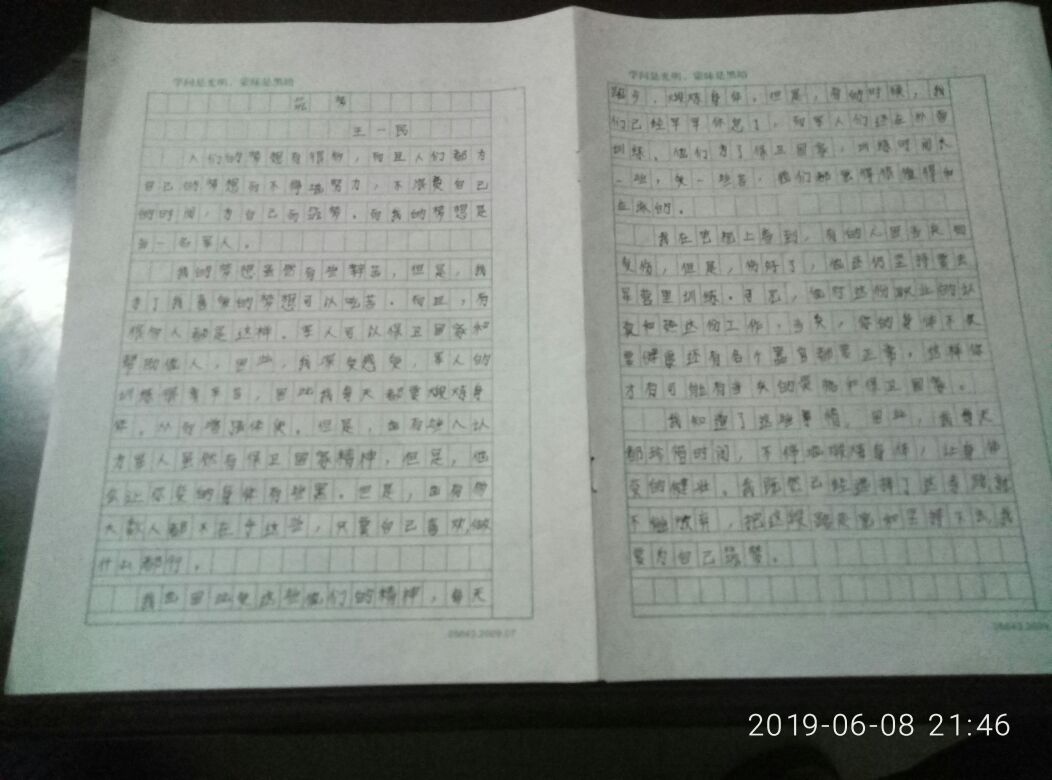 学问是光明，蒙昧是黑暗
梦
王一民
人们的梦想有很多，而且人们都为
自己的梦想而不停地努力，不浪费自己
的时间，为自己而梦。而我的梦想是
当一名军人。
我的梦想虽然有些辛苦，但是，我
为了我喜爱的梦想可以吃苦。而且，有
很多人都是这样。军人可以保卫国家和
帮助他人，因此，我深受感受，军人的
训练很辛苦，因此我每天都要锻炼身
体。从而增强体质。但是，也有些人认
为军人虽然有保卫国家精神，但是，他
会让你变的身体有些黑。但是，也有
大数人都不在乎这些，只要自己喜欢做
什么都行。
我也因此受这些他们的精神，每天
跑步，锻炼身体，但是，有的时候，我
们已经早早休息了，而军人们还在外面
训练、他们为了保卫国家，训练时间长
一些，失一些苦，我们都觉得很值得和
的。
我在电视上看到，有的人因当兵而
负伤，但是，伤好了，他还仍坚持要去
军营里训练。可见，他对这份职业的认
真和这份工作，当兵，你的身体不仅
要健康还有各个器官都要正常，这样你
才有可能有当兵的资格和保卫国家。
我知道了这些事情，因此，我每天
都珍惜时间，不停地锻炼身体，让身体
变的健壮。我既然已经选择了这条路就
不能放弃，把这段路走完和坚持下去我
要为自己梦。
05643.2009.07
05643.2009
2019-06-08 21:46